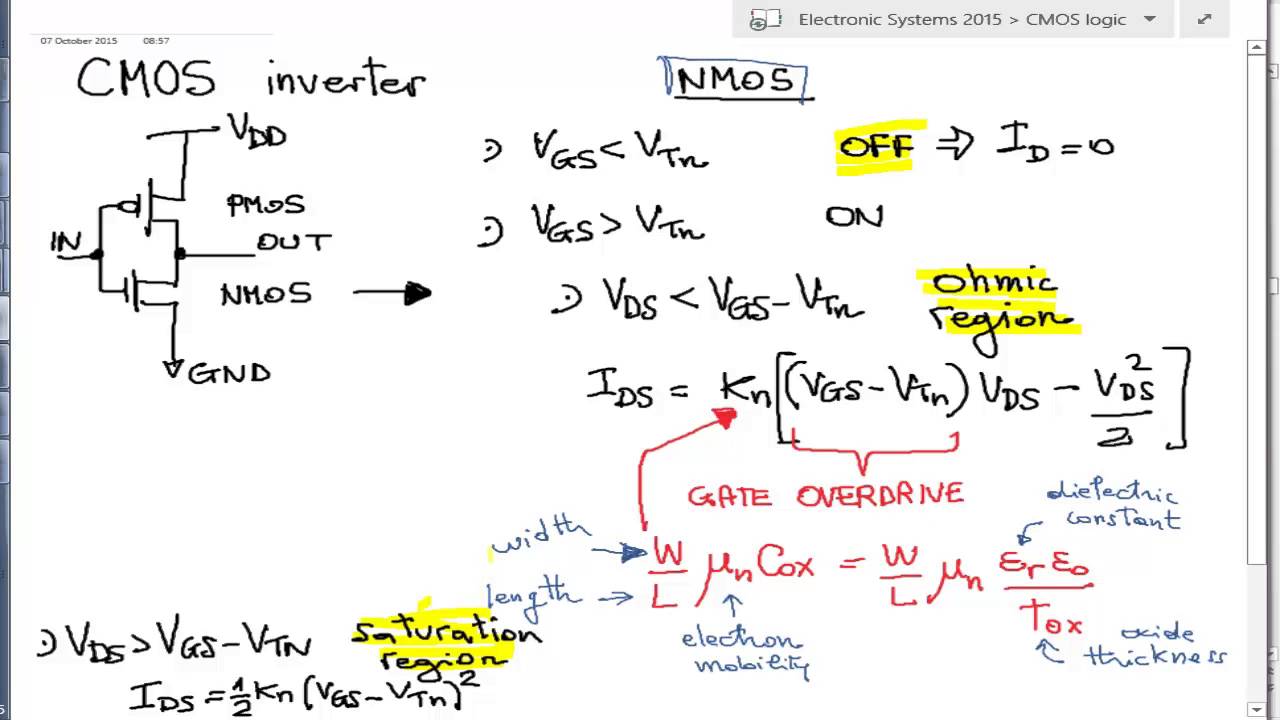 Electronic Systems 2015 > CMOS logic
07 October 2015 08:57
CMOS inverter
VDD
PMOS
IN
OUT
NMOS
GND
NMOS
VGS < VTn OFF ⇒ ID = 0
VGS > VTn ON
VDS < VGS - VTn Ohmic region
IDS = Kn [(VGS - VTn) VDS - VDS²/2]
GATE OVERDRIVE
dielectric
constant
width
length
W/L μn Cox = W/L μn εr ε0/Tox
electron
mobility
oxide
thickness
VDS > VGS - VTN saturation region
IDS = 1/2 Kn (VGS - VTn)²